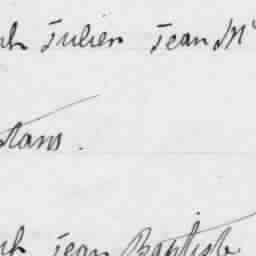 ph Julien Jean M
stans.
ph Jean Baptiste